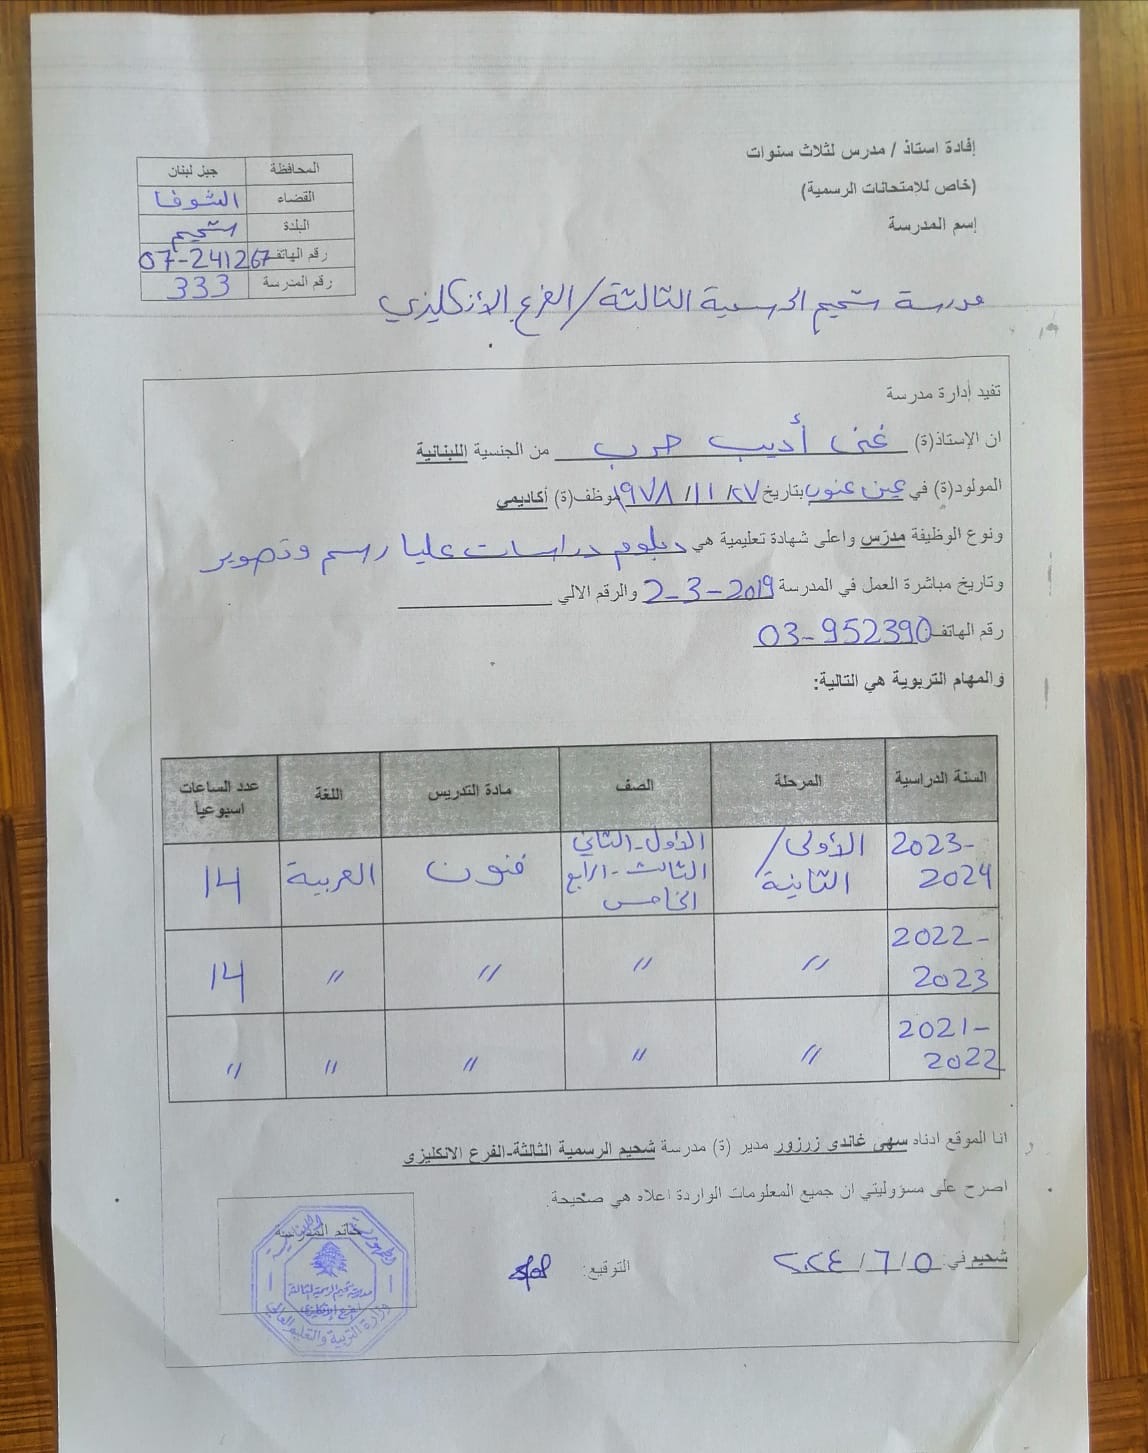 إفادة استاذ / مدرس لثلاث سنوات
(خاص للامتحانات الرسمية)
إسم المدرسة
المحافظة جبل لبنان
القضاء الشوف
البلدة شحيم
رقم الهاتف 07-241267
رقم المدرسة 333
مدرسة شحيم الرسمية الثالثة/الفرع الأنكليزي
تفيد إدارة مدرسة
ان الإستاذ(ة) غنى أديب حرب من الجنسية اللبنانية
المولود(ة) في عين عنوب بتاريخ ٢٧/ ١١/ ١٩٧٨ موظف(ة) أكاديمي
ونوع الوظيفة مدرّس واعلى شهادة تعليمية هي دبلوم دراسات عليا رسم وتصوير
وتاريخ مباشرة العمل في المدرسة 2-3-2019 والرقم الالي
رقم الهاتف 03-952390
والمهام التربوية هي التالية:
السنة الدراسية المرحلة الصف مادة التدريس اللغة عدد الساعات اسبوعياً
2023-2024 الأولى/الثانية الأول-الثاني الثالث-الرابع الخامس فنون العربية 14
2022-2023 // // // // 14
2021-2022 // // // // //
انا الموقع ادناه سهى غاندي زرزور مدير (ة) مدرسة شحيم الرسمية الثالثة-الفرع الانكليزي
اصرح على مسؤوليتي ان جميع المعلومات الواردة اعلاه هي صحيحة.
شحيم في: ٥/ ٦/ ٢٠٢٤ التوقيع:
خاتم المدرسة
الجمهورية اللبنانية
مدرسة شحيم الرسمية الثالثة
الفرع الإنكليزي
وزارة التربية والتعليم العالي